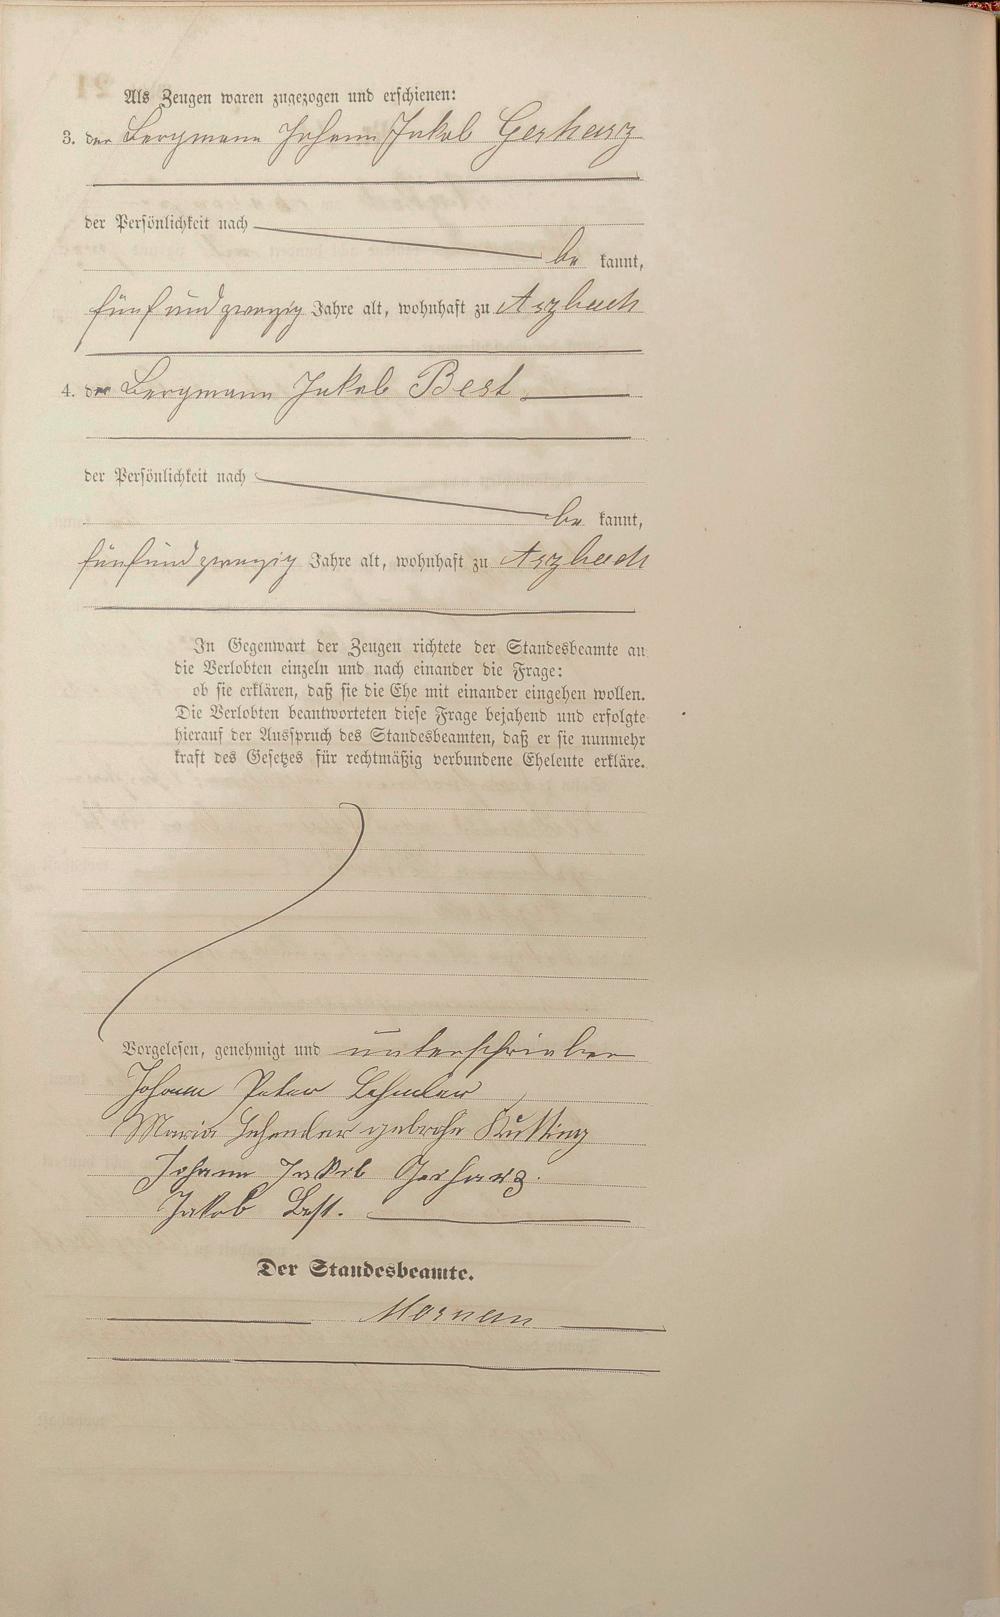 Als Zeugen waren zugezogen und erschienen:
3. der Bergmann Johann Jakob Gerharz
der Persönlichkeit nach
be kannt,
fünfundzwanzig Jahre alt, wohnhaft zu Arzbach
4. der Bergmann Jakob Best.
der Persönlichkeit nach
be kannt,
fünfundzwanzig Jahre alt, wohnhaft zu Arzbach
In Gegenwart der Zeugen richtete der Standesbeamte an
die Verlobten einzeln und nach einander die Frage:
ob sie erklären, daß sie die Ehe mit einander eingehen wollen.
Die Verlobten beantworteten diese Frage bejahend und erfolgte
hierauf der Ausspruch des Standesbeamten, daß er sie nunmehr
kraft des Gesetzes für rechtmäßig verbundene Eheleute erkläre.
Vorgelesen, genehmigt und unterschrieben
Johann Peter
Maria geborene
Johann Jakob Gerharz.
Jakob Best.
Der Standesbeamte.